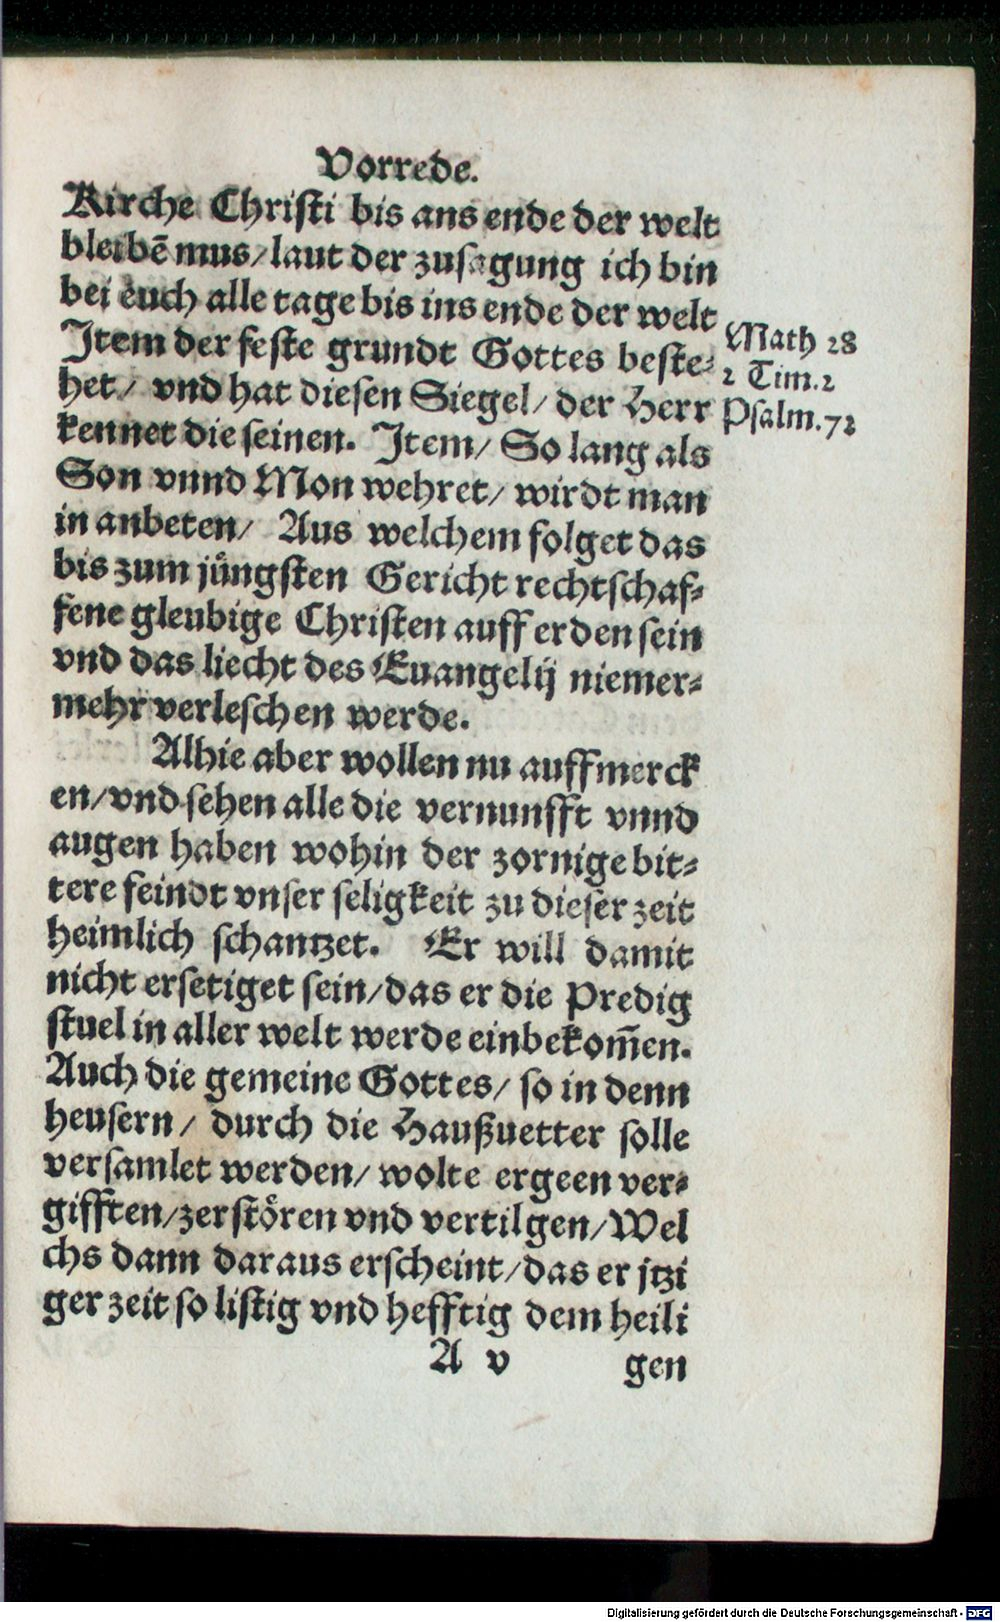 Vorrede.
Kirche Christi bis ans ende der welt
bleibē mus/laut der zusagung ich bin
bei euch alle tage bis ins ende der welt
Item der feste grundt Gottes beste⸗
het/ vnd hat diesen Siegel/ der Herr
kennet die seinen. Item/ So lang als
Son vnnd Mon wehret/ wirdt man
in anbeten/ Aus welchem folget das
bis zum jüngsten Gericht rechtschaf⸗
fene gleubige Christen auff erden sein
vnd das liecht des Euangelij niemer⸗
mehr verleschen werde.
Math 28
2 Tim.2
Psalm.72
Alhie aber wollen nu auffmerck
en/vnd sehen alle die vernunfft vnnd
augen haben wohin der zornige bit⸗
tere feindt vnser seligkeit zu dieser zeit
heimlich schantzet. Er will damit
nicht ersetiget sein/das er die Predig
stuel in aller welt werde einbekom̄en.
Auch die gemeine Gottes/ so in denn
heusern/ durch die Haußuetter solle
versamlet werden/ wolte ergeen ver⸗
gifften/zerstören vnd vertilgen/Wel
chs dann daraus erscheint/das er jtzi
ger zeit so listig vnd hefftig dem heili
A v gen
Digitalisierung gefördert durch die Deutsche Forschungsgemeinschaft - DFG